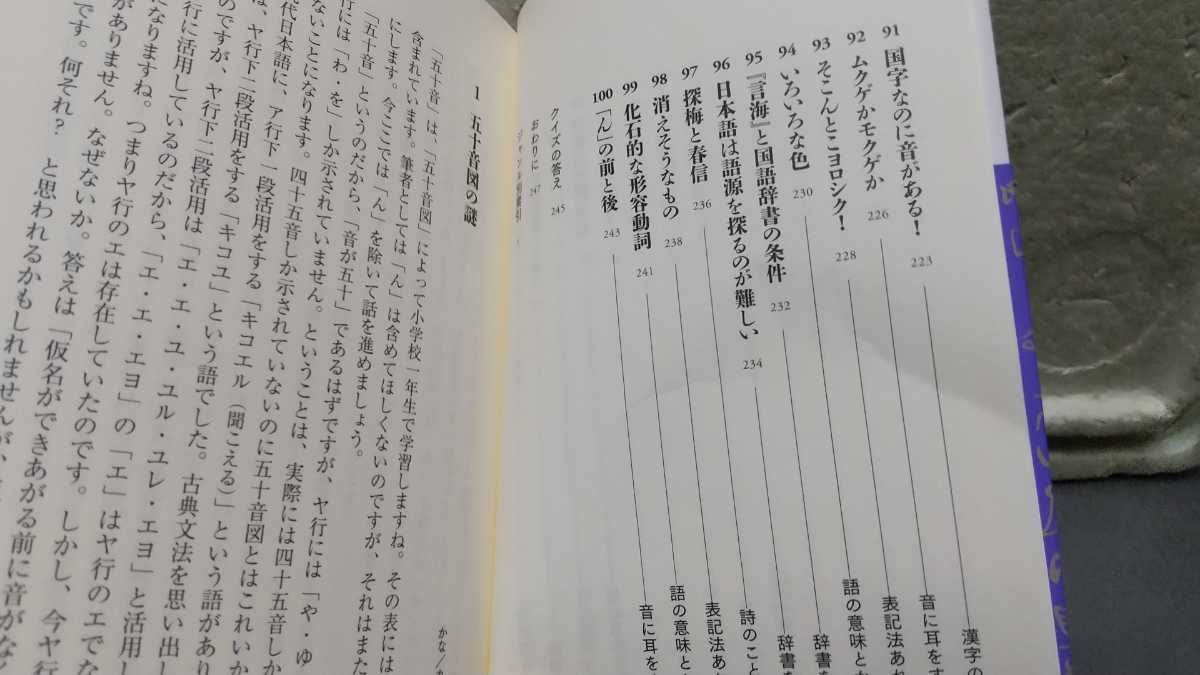 91 国字なのに音がある! 223 漢字の
92 ムクゲかモクゲか 226 音に耳をす
93 そこんとこヨロシク! 228 表記法あれ
94 いろいろな色 230 語の意味とか
95 『言海』と国語辞書の条件 232 辞書を
96 日本語は語源を探るのが難しい 234 辞書を
97 探梅と春信 236 詩のこと
98 消えそうなもの 238 表記法あれ
99 化石的な形容動詞 241 語の意味と
100 「ん」の前と後 243 音に耳を
クイズの答え 245
おわりに 247
ジャンル別索引
1 五十音図の謎
かな/か
「五十音」は、「五十音図」によって小学校一年生で学習しますね。その表には
含まれています。筆者としては「ん」は含めてほしくないのですが、それはまた
にします。今ここでは「ん」を除いて話を進めましょう。
「五十音」というのだから、「音が五十」であるはずですが、ヤ行には「や・ゆ
行には「わ・を」しか示されていません。ということは、実際には四十五音しか
ないことになります。四十五音しか示されていないのに五十音図とはこれいか
代日本語に、ア行下一段活用をする「キコエル(聞こえる)」という語があり
は、ヤ行下二段活用をする「キコユ」という語でした。古典文法を思い出し
のですが、ヤ行下二段活用は「エ・エ・ユ・ユル・ユレ・エヨ」と活用し
行に活用しているのだから、「エ・エ・エヨ」の「エ」はヤ行のエでな
になりますね。つまりヤ行のエは存在していたのです。しかし、今ヤ行
がありません。なぜないか。答えは「仮名ができあがる前に音がなく
です。何それ? と思われるかもしれませんが、